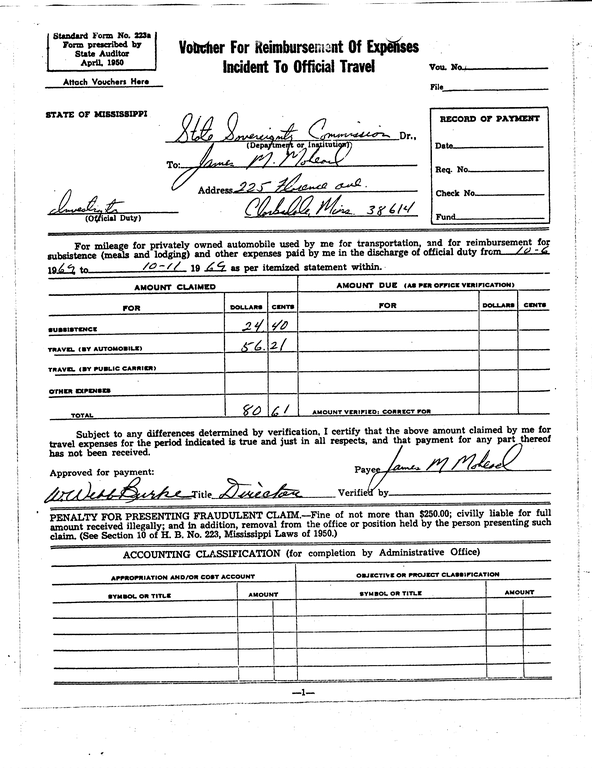 Standard Form No. 223a
Form prescribed by
State Auditor
April, 1950
Attach Vouchers Here
Voucher For Reimbursement Of Expenses
Incident To Official Travel
Vou. No.
File
STATE OF MISSISSIPPI
State Sovereignty Commission Dr.,
(Department or Institution)
To: James M.
Address 225 Florence ave.
Miss. 38614
Investigator
(Official Duty)
RECORD OF PAYMENT
Date
Req. No.
Check No.
Fund
For mileage for privately owned automobile used by me for transportation, and for reimbursement for
subsistence (meals and lodging) and other expenses paid by me in the discharge of official duty from 10-6
1969 to 10-11 1969 as per itemized statement within.
AMOUNT CLAIMED AMOUNT DUE (AS PER OFFICE VERIFICATION)
FOR DOLLARS CENTS FOR DOLLARS CENTS
SUBSISTENCE 24 40
TRAVEL (BY AUTOMOBILE) 56. 21
TRAVEL (BY PUBLIC CARRIER)
OTHER EXPENSES
TOTAL 80 61 AMOUNT VERIFIED; CORRECT FOR
Subject to any differences determined by verification, I certify that the above amount claimed by me for
travel expenses for the period indicated is true and just in all respects, and that payment for any part thereof
has not been received.
Approved for payment: Payee James M
W. Webb Burke Title Director Verified by
PENALTY FOR PRESENTING FRAUDULENT CLAIM.—Fine of not more than $250.00; civilly liable for full
amount received illegally; and in addition, removal from the office or position held by the person presenting such
claim. (See Section 10 of H. B. No. 223, Mississippi Laws of 1950.)
ACCOUNTING CLASSIFICATION (for completion by Administrative Office)
APPROPRIATION AND/OR COST ACCOUNT OBJECTIVE OR PROJECT CLASSIFICATION
SYMBOL OR TITLE AMOUNT SYMBOL OR TITLE AMOUNT
—1—